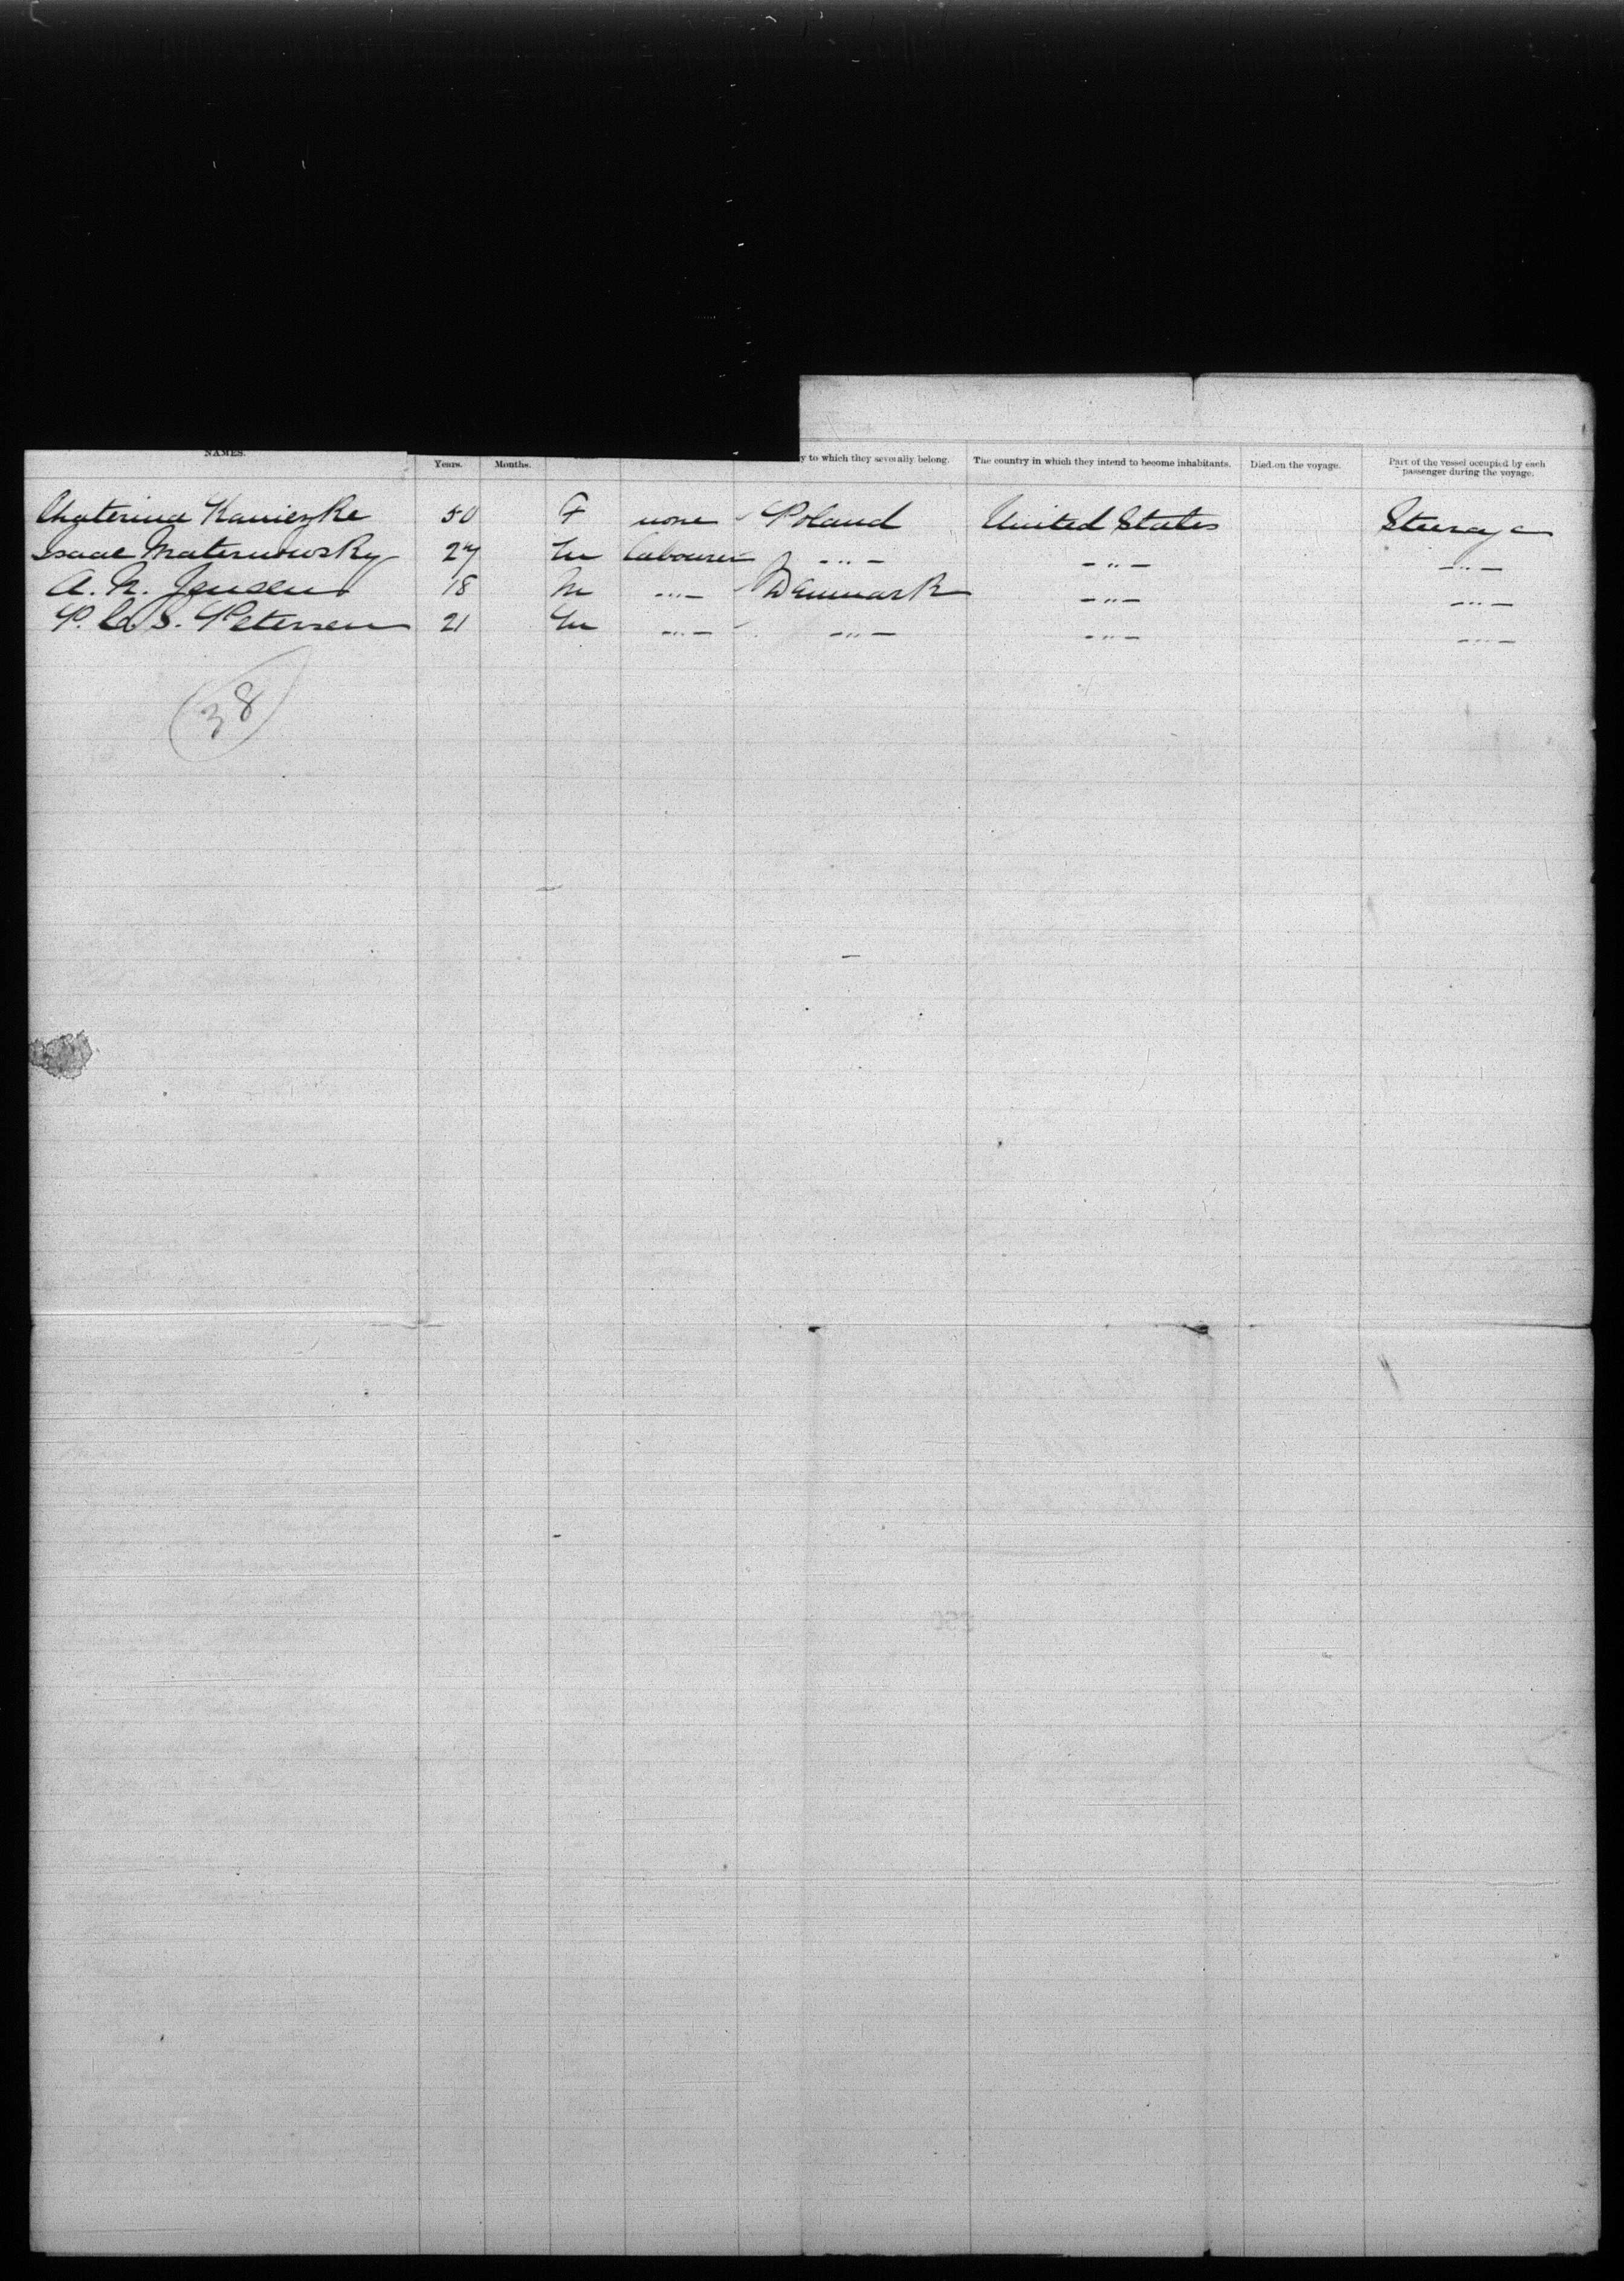 NAMES. Years. Months. y to which they severally belong. The country in which they intend to become inhabitants. Died on the voyage. Part of the vessel occupied by each
passenger during the voyage.
Chaterina Kaniezke 50 F none Poland United States Steerage
Isaac Maternowsky 27 M labourer -"- -"- -"-
A. N. Jensen 18 M -"- Denmark -"- -"-
P. C. S. Petersen 21 M -"- -"- -"- -"-
38